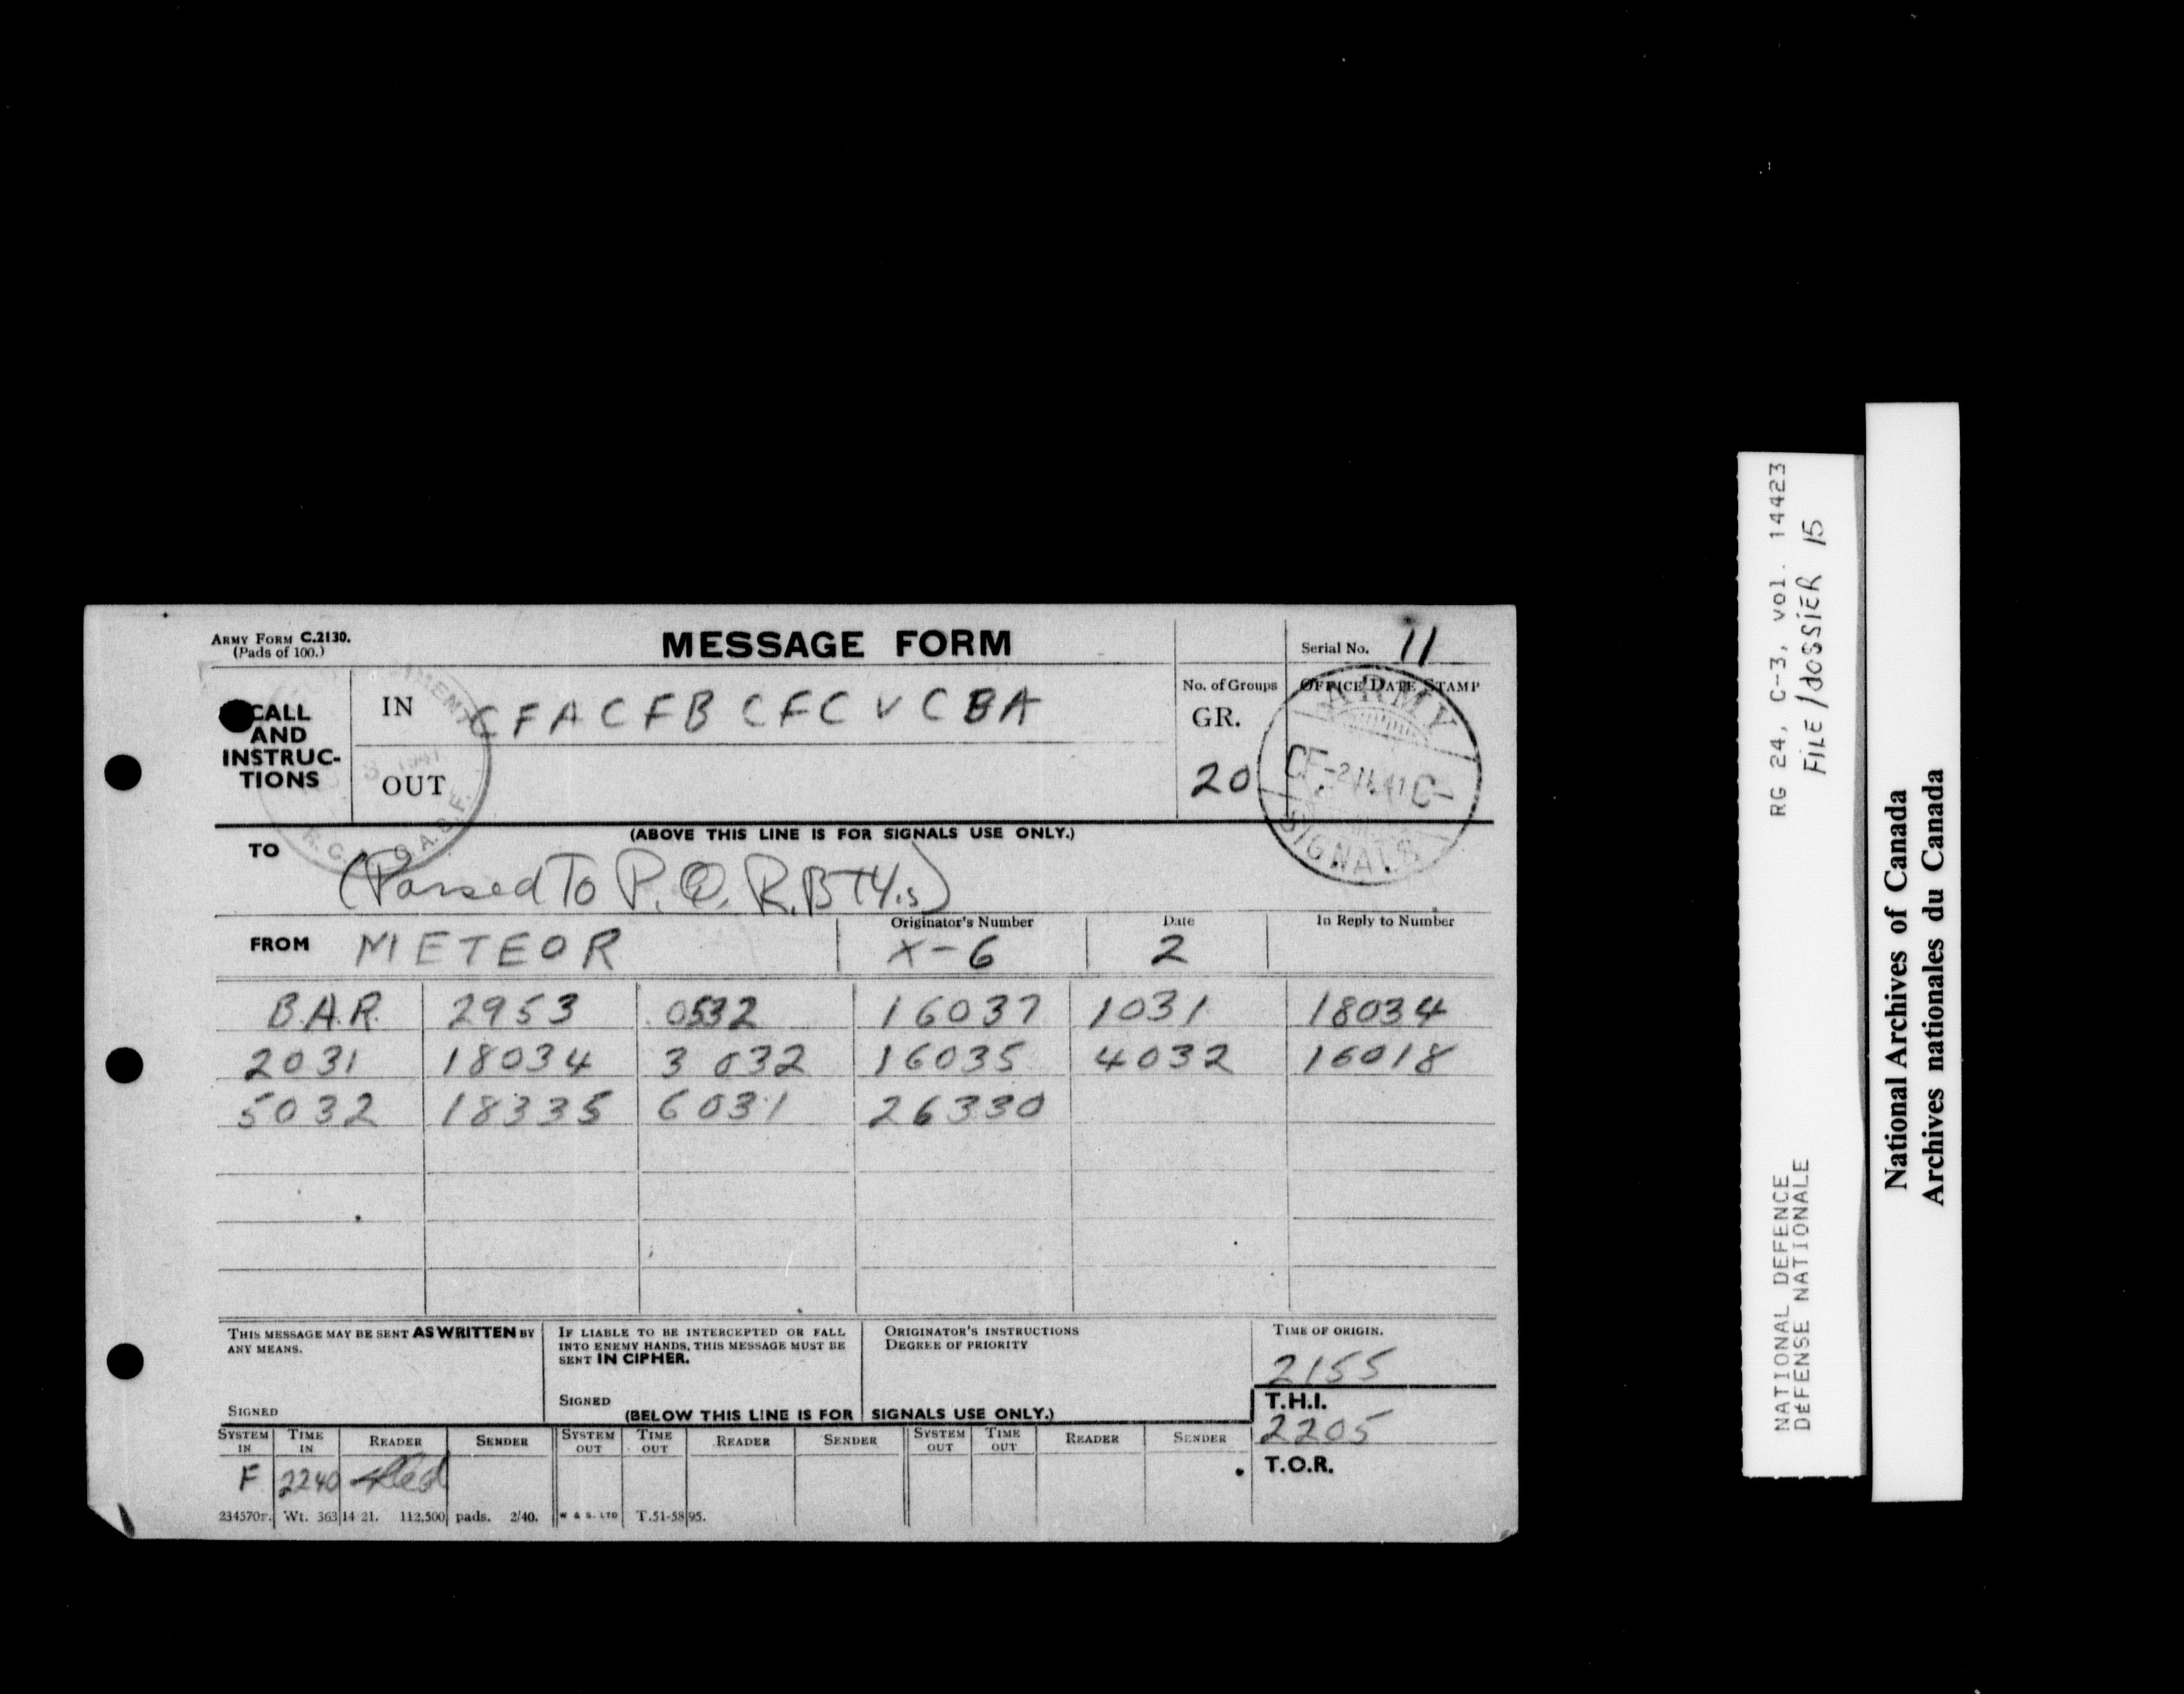 ARMY FORM C.2130.
(Pads of 100.)
MESSAGE FORM
Serial No. 11
CALL AND INSTRUC-TIONS
IN CFA CFB CFC V CBA
OUT
No. of Groups
GR.
20
OFFICE DATE STAMP
ARMY
SIGNALS
(ABOVE THIS LINE IS FOR SIGNALS USE ONLY.)
TO
(Passed To P.Q.R.BTY.s)
FROM METEOR
Originator's Number
X-6
Date
2
In Reply to Number
B.A.R. 2953 0532 16037 1031 18034
2031 18034 3032 16035 4032 16018
5032 18335 6031 26330
THIS MESSAGE MAY BE SENT AS WRITTEN BY
ANY MEANS.
SIGNED
IF LIABLE TO BE INTERCEPTED OR FALL
INTO ENEMY HANDS, THIS MESSAGE MUST BE
SENT IN CIPHER.
SIGNED
ORIGINATOR'S INSTRUCTIONS
DEGREE OF PRIORITY
TIME OF ORIGIN.
2155
T.H.I.
2205
T.O.R.
(BELOW THIS LINE IS FOR SIGNALS USE ONLY.)
SYSTEM IN TIME IN READER SENDER SYSTEM OUT TIME OUT READER SENDER SYSTEM OUT TIME OUT READER SENDER
F 2240
234570r. Wt. 363 14 21. 112,500 pads. 2/40. W & S. LTD T.51-58 95.
RG 24, C-3, vol. 14423
FILE/DOSSIER 15
NATIONAL DEFENCE
DÉFENSE NATIONALE
National Archives of Canada
Archives nationales du Canada